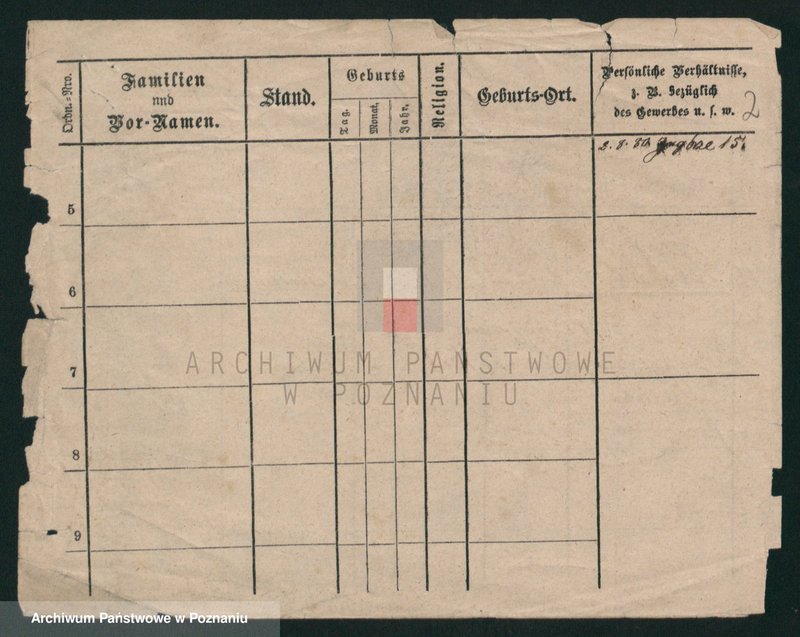 Ordn.-Nro.
Familien
und
Vor-Namen.
Stand.
Geburts
Tag.
Monat.
Jahr.
Religion.
Geburts-Ort.
Persönliche Verhältnisse,
z. B. bezüglich
des Gewerbes u. s. w.
2
2. 8. 15.
5
6
7
8
9
ARCHIWUM PAŃSTWOWE
W POZNANIU
Archiwum Państwowe w Poznaniu